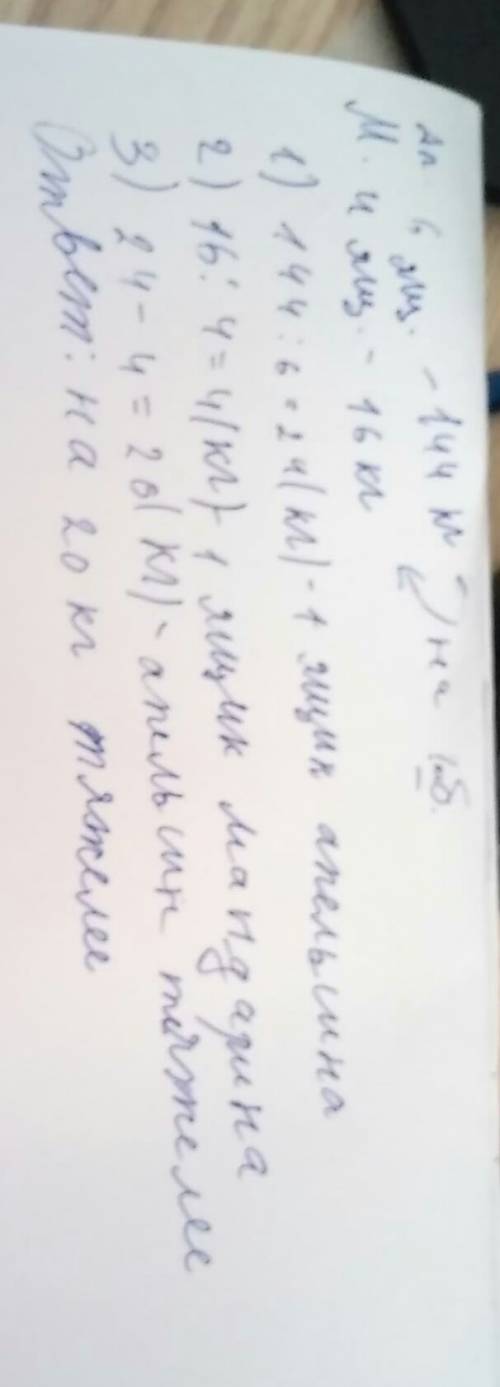 Ап. 6 ящ. - 144 кг
М. 4 ящ. - 16 кг
на
1) 144 : 6 = 24 (кг) - 1 ящик апельсина
2) 16 : 4 = 4 (кг) - 1 ящик мандарина
3) 24 - 4 = 20 (кг) - апельсин тяжелее
Ответ: на 20 кг тяжелее